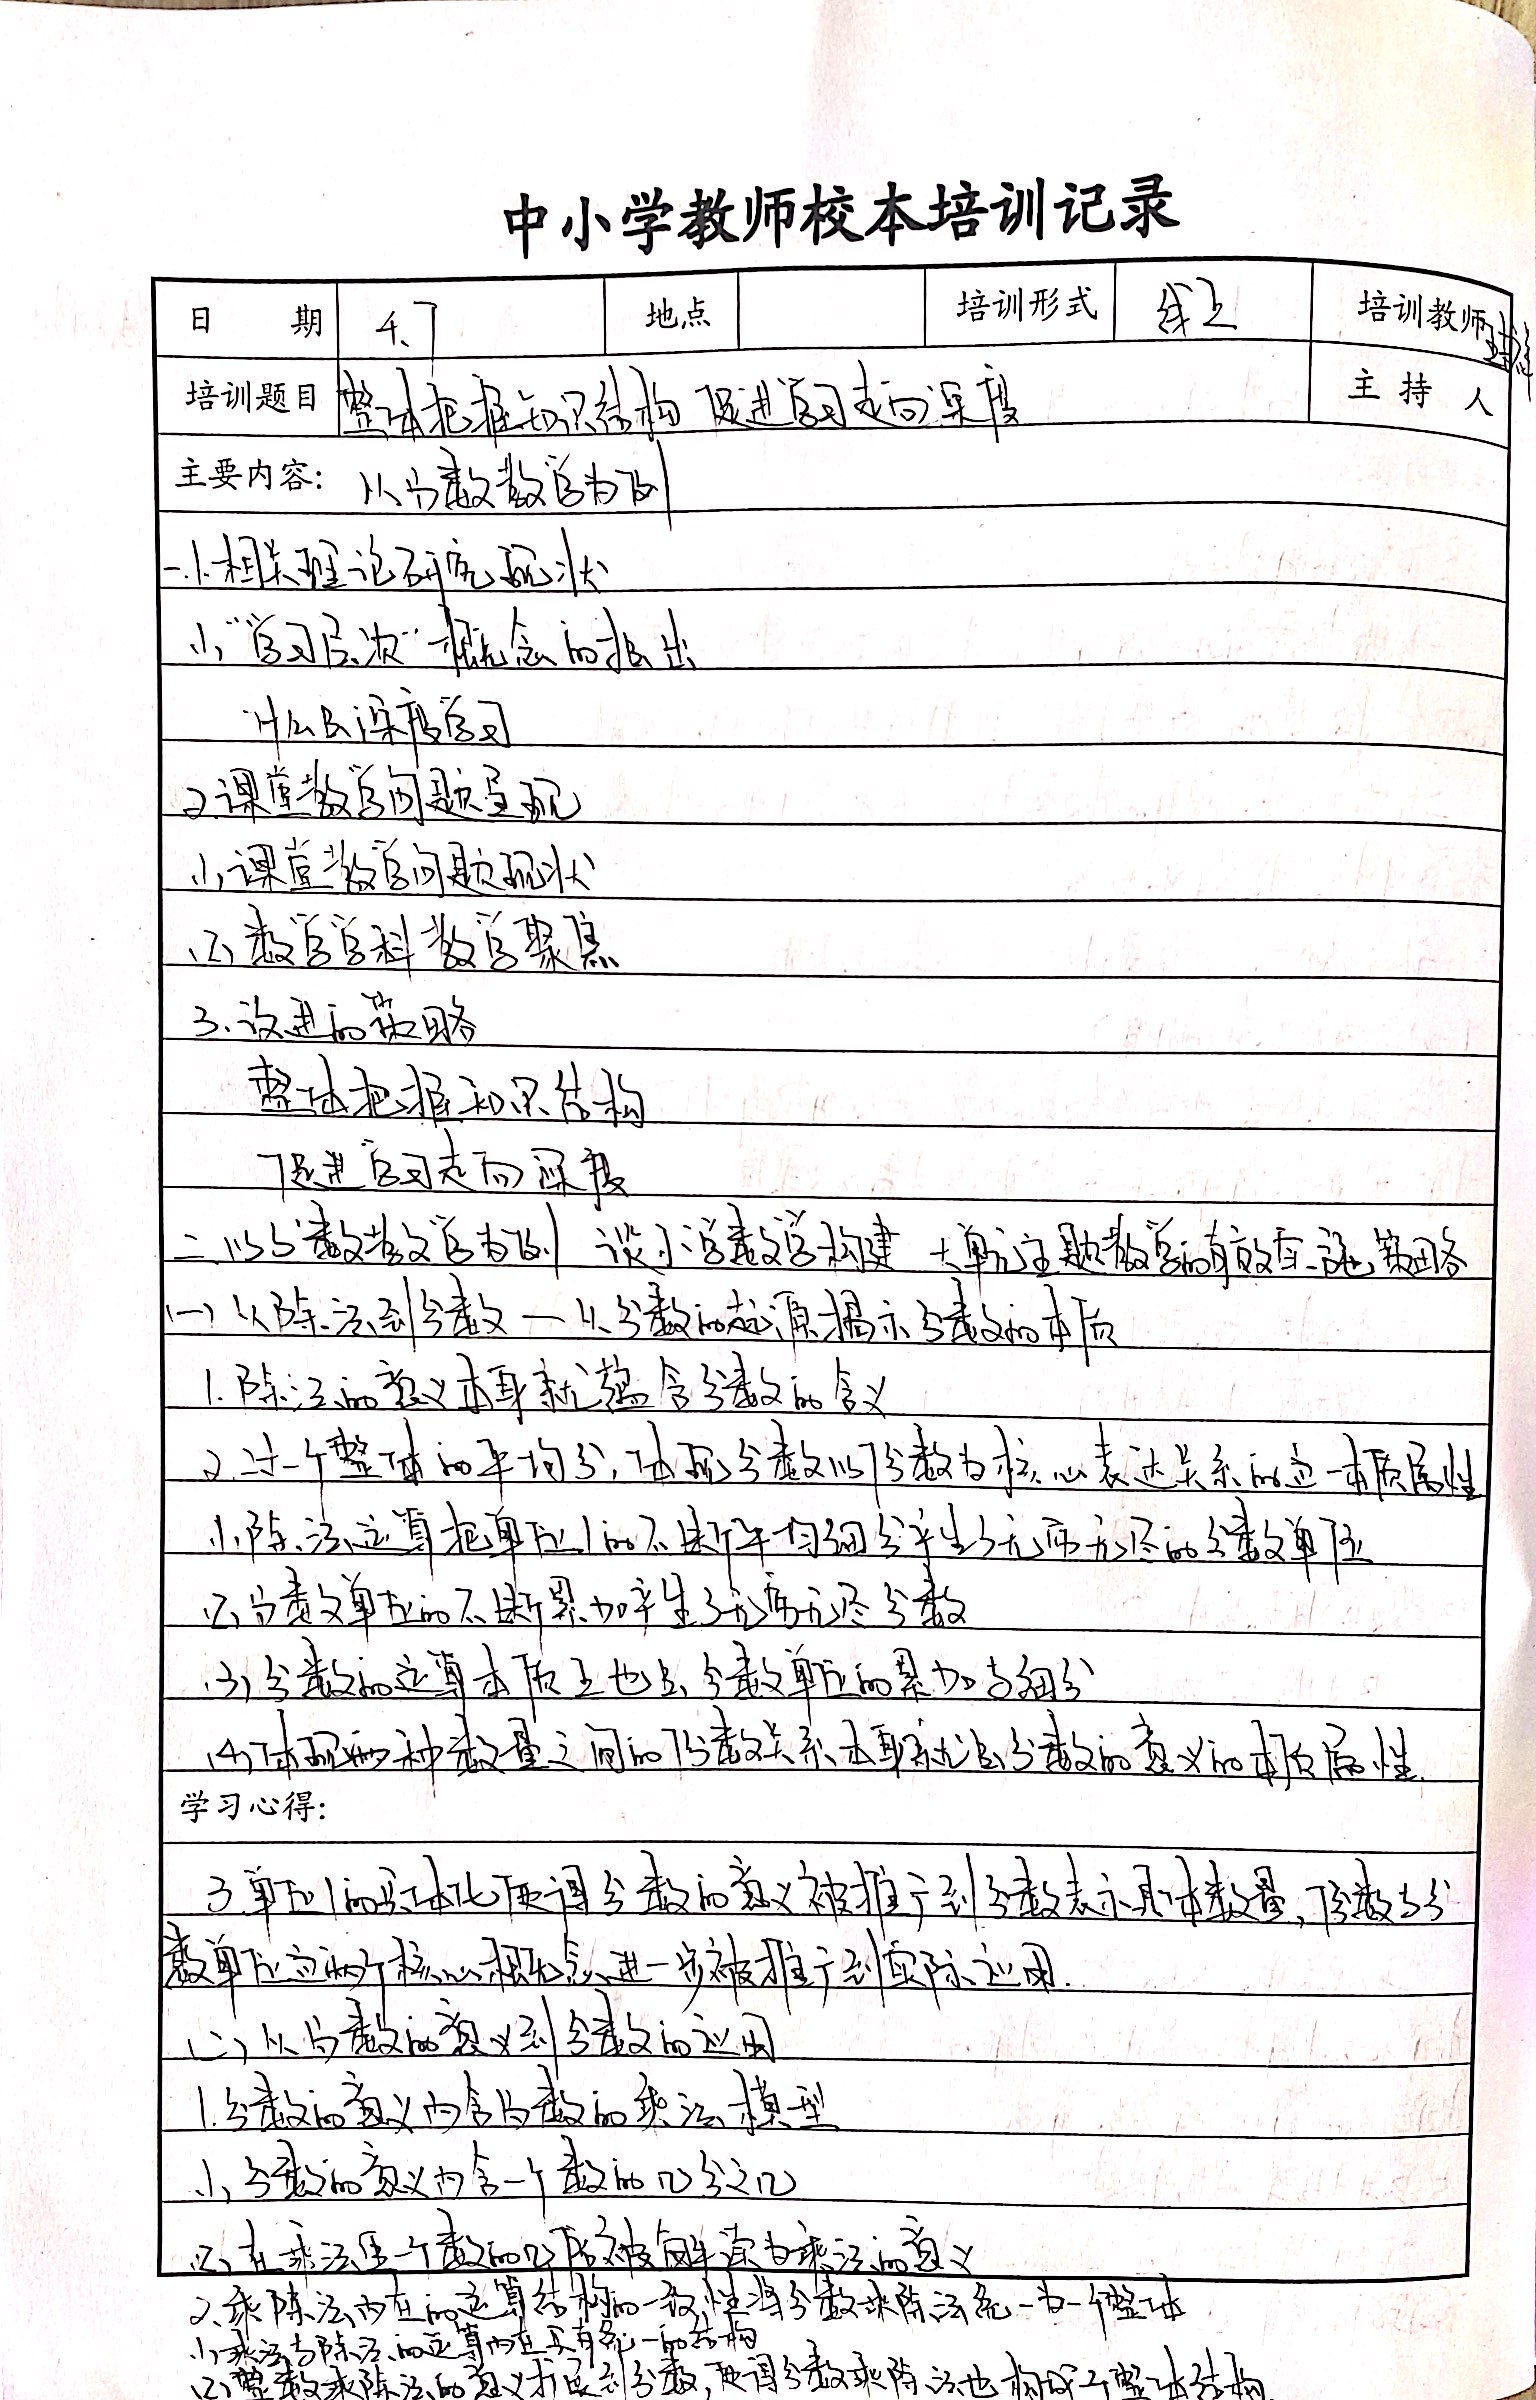 中小学教师校本培训记录
日期 4.7 地点 培训形式 线上 培训教师
培训题目 整体把握知识结构 促进学习走向深度 主持人
主要内容: 从分数教学为例
一.1.相关理论研究现状
(1)“学习层次”概念的提出
什么是深度学习
2.课堂教学问题呈现
(1)课堂教学问题现状
(2)数学学科教学聚焦
3.改进的策略
整体把握知识结构
促进学习走向深度
二.以分数教学为例 谈小学数学构建 大单元主题教学的有效实施策略
(一)从除法到分数—从分数的起源揭示分数的本质
1.除法的意义本身就蕴含分数的含义
2.对一个整体的平均分,体现分数以份数为核心表达关系的这一本质属性
(1)除法运算把单位1的不断平均细分产生了无穷无尽的分数单位
(2)分数单位的不断累加产生了无穷无尽分数
(3)分数的运算本质上也是分数单位的累加与细分
(4)体现两种数量之间的份数关系本身就是分数的意义的本质属性.
学习心得:
3.单位1的具体化使得分数的意义被推广到分数表示具体数量,份数与分
数单位这两个核心概念进一步被推广到实际应用.
(二)从分数的意义到分数的应用
1.分数的意义内含分数的乘法模型
(1)分数的意义内含一个数的几分之几
(2)在乘法里一个数的几倍被解读为乘法的意义
2.乘除法内在的运算结构的一致性将分数乘除法统一为一个整体
(1)乘法与除法的运算内在具有统一的结构
(2)整数乘除法的意义扩展到分数,使得分数乘除法也构成了整体结构.